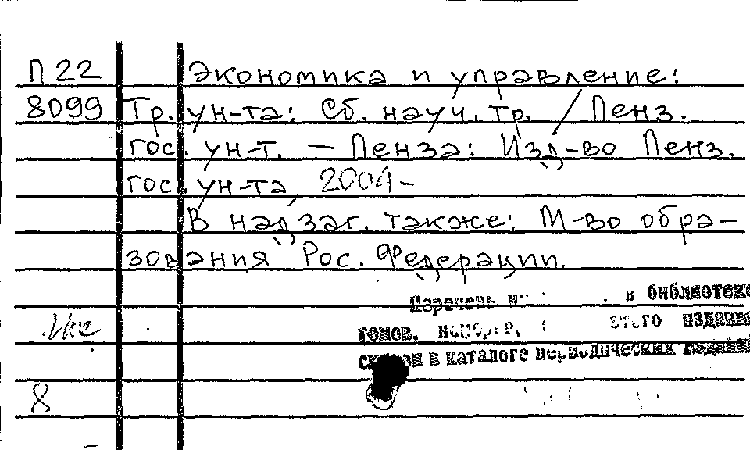 П 22 Экономика и управление:
8099 Тр. ун-та: Сб. науч. тр. / Пенз.
гос. ун-т. – Пенза: Изд-во Пенз.
гос. ун-та, 2004–
В надзаг. также: М-во обра-
зования Рос. Федерации.
Перечень в библиотеке
томов, номеров, этого издания
в каталоге периодических изданий
8